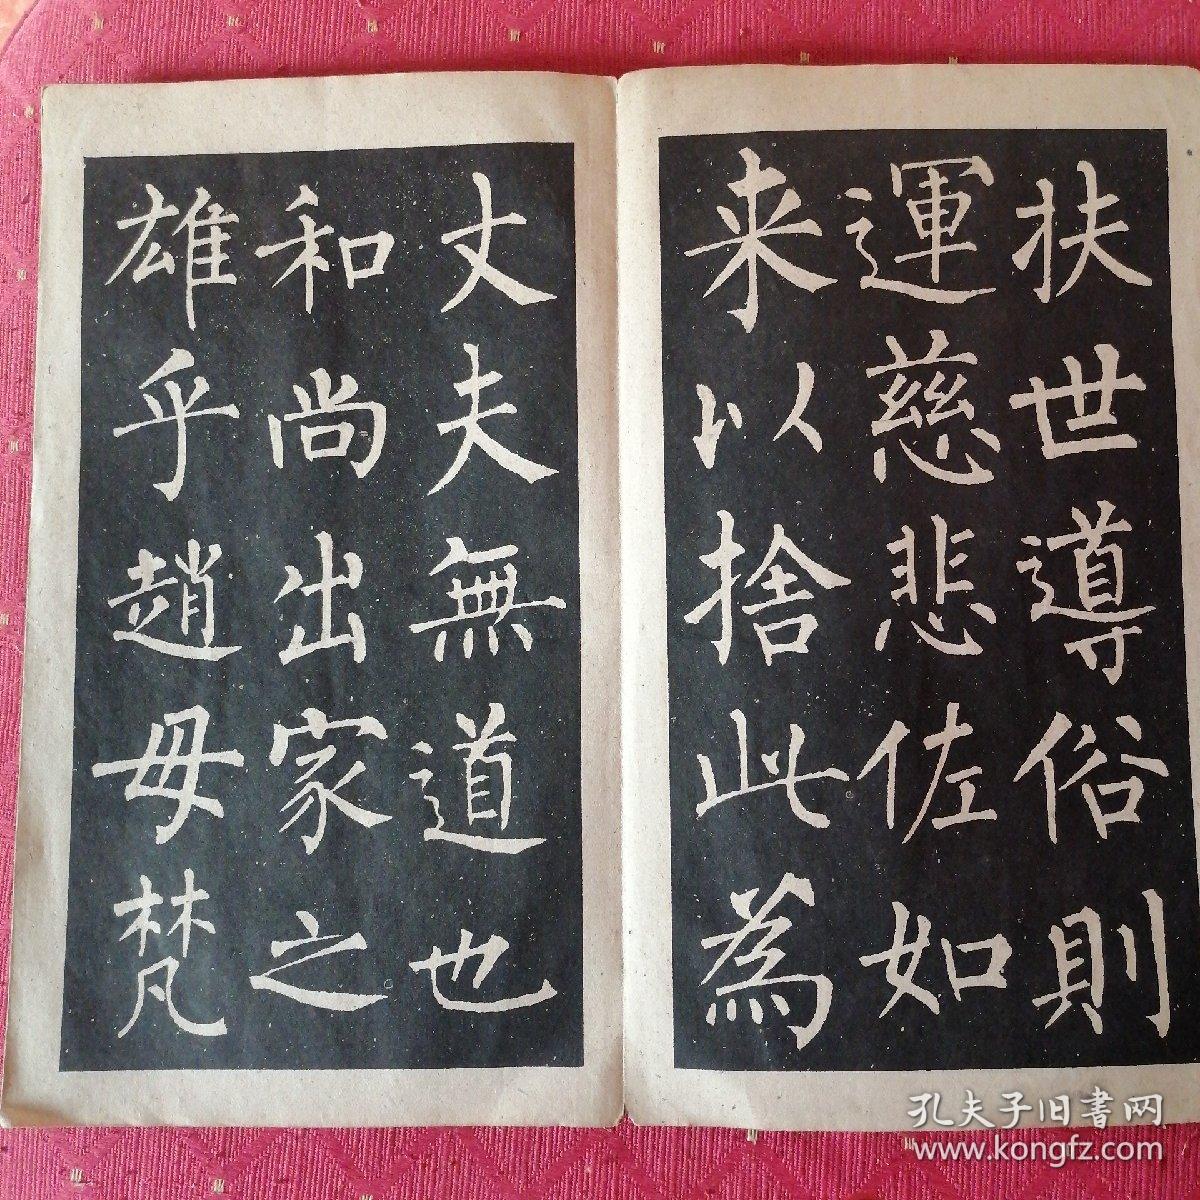 扶世導俗則
運慈悲佐如
来以捨此為
丈夫無道也
和尚出家之
雄乎趙母梵
孔夫子旧書网
www.kongfz.com